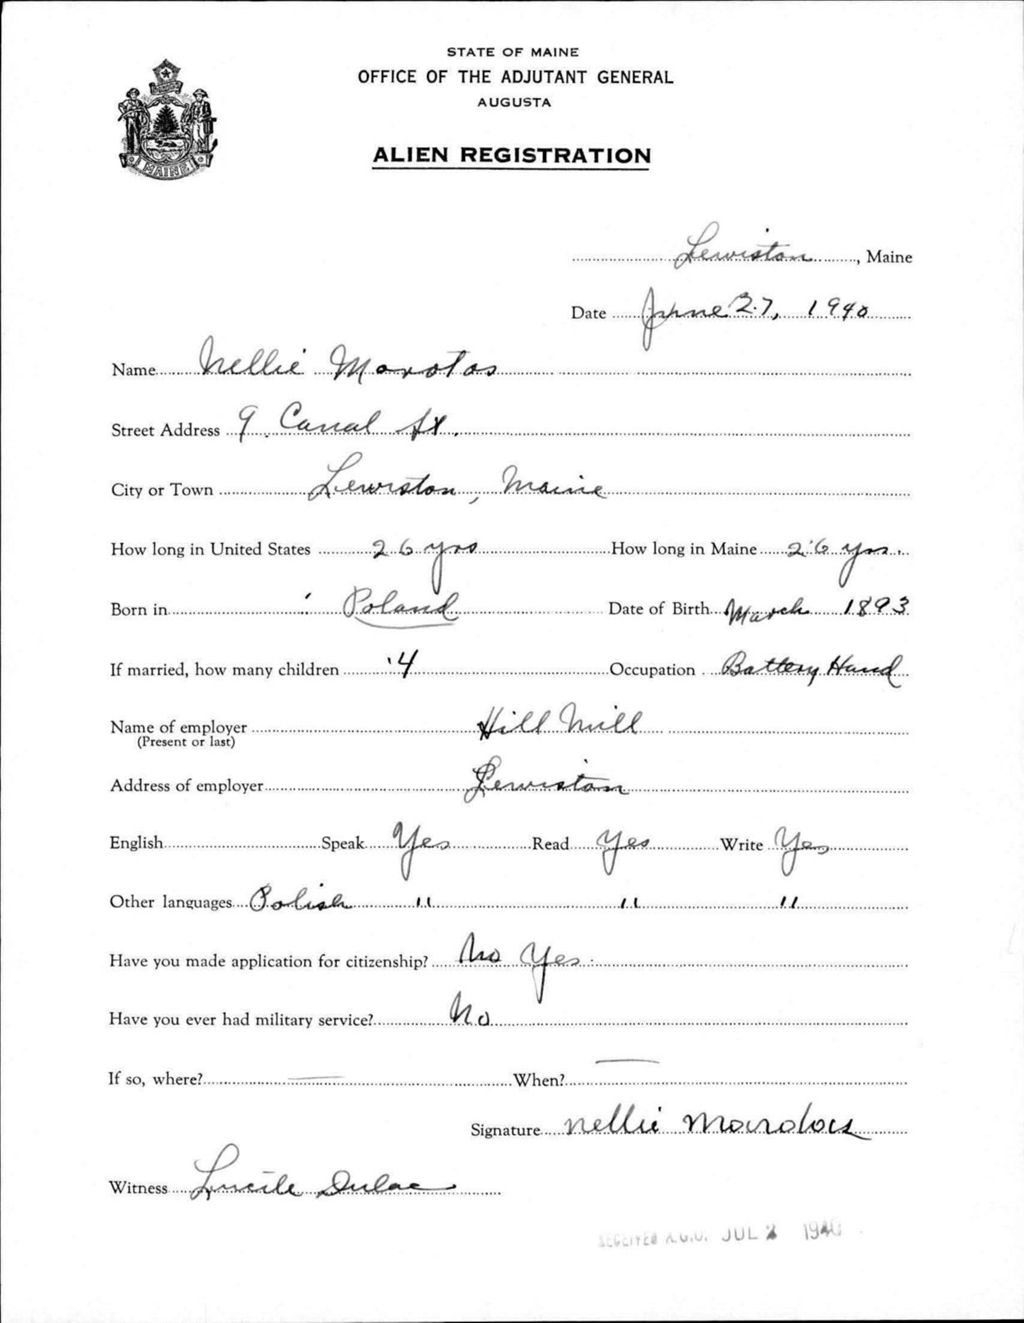 STATE OF MAINE
OFFICE OF THE ADJUTANT GENERAL
AUGUSTA
ALIEN REGISTRATION
MAINE
Lewiston, Maine
Date June 27, 1940
Name Nellie Marotas
Street Address 9 Canal St.
City or Town Lewiston, Maine
How long in United States 26 yrs How long in Maine 26 yrs.
Born in Poland Date of Birth March 1893
If married, how many children 4 Occupation Battery Hand
Name of employer Hill Mill
(Present or last)
Address of employer Lewiston
English Speak Yes Read Yes Write Yes
Other languages Polish " " "
Have you made application for citizenship? No Yes
Have you ever had military service? No
If so, where? — When? —
Signature Nellie
Witness Lucile Dulac
RECEIVED A.G.O. JUL 2 1940